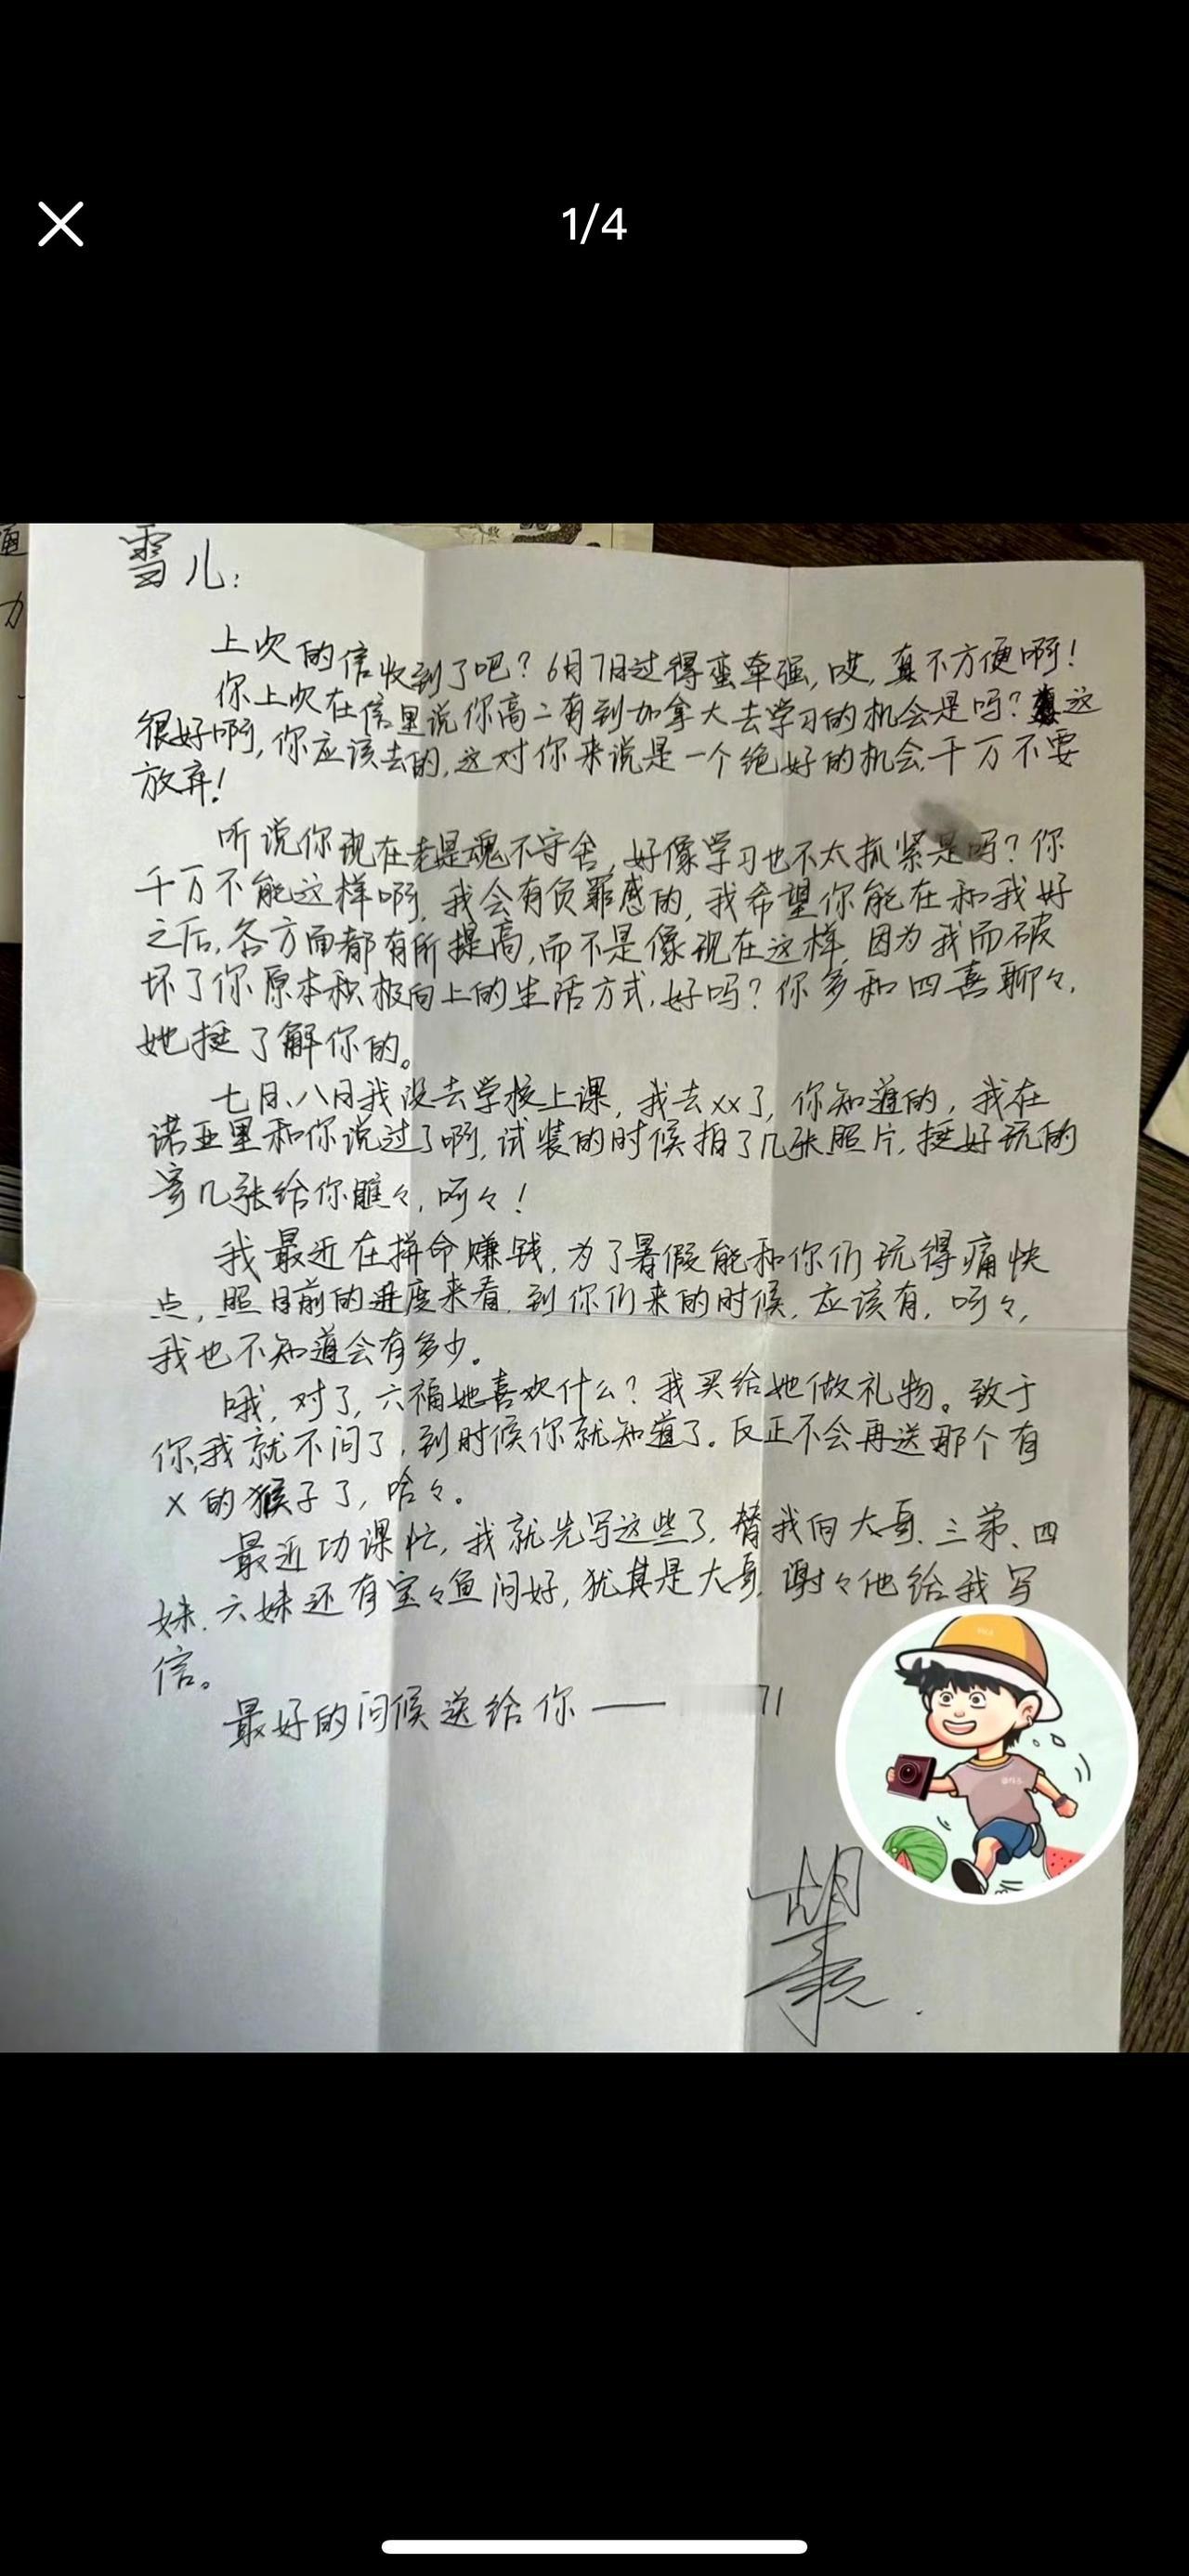 1/4
雪儿：
上次的信收到了吧？6月7日过得蛮牵强，哎，真不方便啊！
你上次在信里说你高二有到加拿大去学习的机会是吗？这
很好啊，你应该去的，这对你来说是一个绝好的机会，千万不要
放弃！
听说你现在老是魂不守舍，好像学习也不太抓紧是吗？你
千万不能这样啊，我会有负罪感的，我希望你能在和我好
之后，各方面都有所提高，而不是像现在这样，因为我而破
坏了你原本积极向上的生活方式，好吗？你多和四喜聊々，
她挺了解你的。
七日、八日我没去学校上课，我去xx了，你知道的，我在
诺亚里和你说过了啊，试装的时候拍了几张照片，挺好玩的
寄几张给你瞧々，呵々！
我最近在拼命赚钱，为了暑假能和你们玩得痛快
点，照目前的进度来看，到你们来的时候，应该有，呵々，
我也不知道会有多少。
哦，对了，六福她喜欢什么？我买给她做礼物。致于
你，我就不问了，到时候你就知道了。反正不会再送那个有
X的猴子了，哈々。
最近功课忙，我就先写这些了，替我向大哥、三弟、四
妹、六妹还有宝々鱼问好，犹其是大哥，谢々他给我写
信。
最好的问候送给你——
71
胡